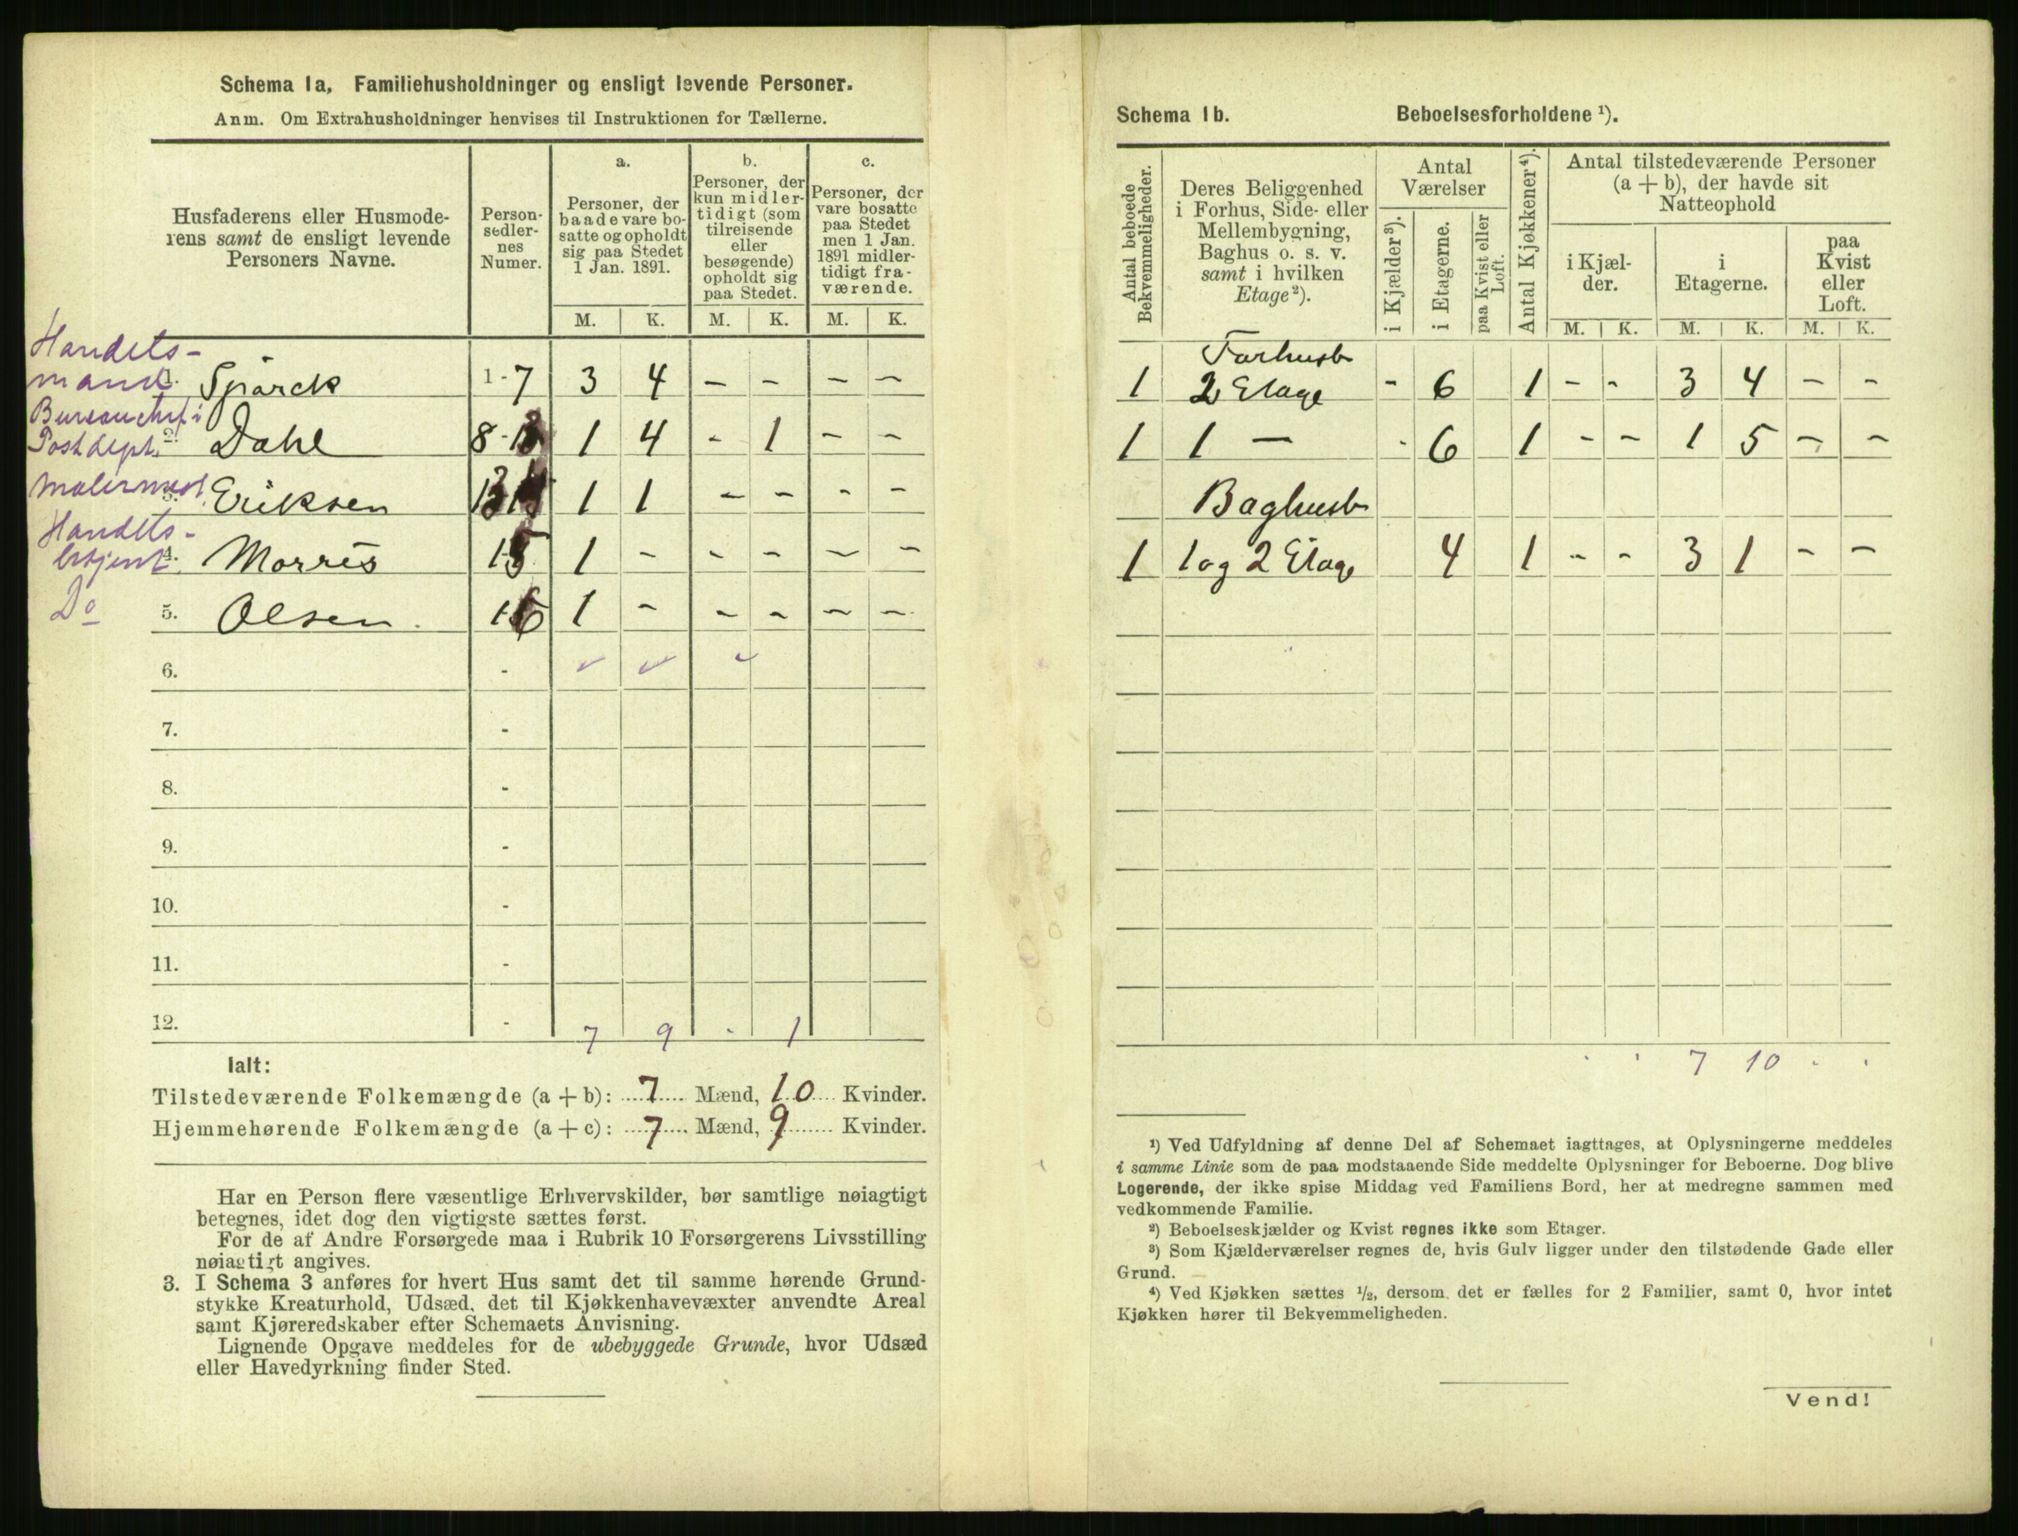 Schema 1a. Familiehusholdninger og ensligt levende Personer.
Anm. Om Extrahusholdninger henvises til Instruktionen for Tællerne.
Husfaderens eller Husmoderens samt de ensligt levende Personers Navne.
Personsedlernes Numer.
a.
Personer, der baade vare bosatte og opholdt sig paa Stedet 1 Jan. 1891.
b.
Personer, der kun midlertidigt (som tilreisende eller besøgende) opholdt sig paa Stedet.
c.
Personer, der vare bosatte paa Stedet men 1 Jan. 1891 midlertidigt fraværende.
M. K. M. K. M. K.
Handels-
mand 1. Spärck 1-7 3 4 – – – –
Bureauchef i
Postdept. 2. Dahl 8- 1 4 - 1 – –
Malermest. 3. Eriksen 1 1 – – - –
Handels-
betjent 4. Morris 15 1 – – – – –
Do 5. Olsen. 16 1 – – – – –
6. -
7. -
8. -
9. -
10. -
11. -
12. -
7 9 - 1
Ialt:
Tilstedeværende Folkemængde (a + b): 7 Mænd, 10 Kvinder.
Hjemmehørende Folkemængde (a + c): 7 Mænd, 9 Kvinder.
Har en Person flere væsentlige Erhvervskilder, bør samtlige nøiagtigt
betegnes, idet dog den vigtigste sættes først.
For de af Andre Forsørgede maa i Rubrik 10 Forsørgerens Livsstilling
nøiagtigt angives.
3. I Schema 3 anføres for hvert Hus samt det til samme hørende Grund-
stykke Kreaturhold, Udsæd, det til Kjøkkenhavevæxter anvendte Areal
samt Kjøreredskaber efter Schemaets Anvisning.
Lignende Opgave meddeles for de ubebyggede Grunde, hvor Udsæd
eller Havedyrkning finder Sted.
Schema 1b. Beboelsesforholdene ¹).
Antal beboede Bekvemmeligheder.
Deres Beliggenhed i Forhus, Side- eller Mellembygning, Baghus o. s. v. samt i hvilken Etage²).
Antal Værelser
i Kjælder³).
i Etagerne.
paa Kvist eller Loft.
Antal Kjøkkener⁴).
Antal tilstedeværende Personer (a + b), der havde sit Natteophold
i Kjælder.
i Etagerne.
paa Kvist eller Loft.
M. K. M. K. M. K.
Forhuset
1 2 Etage - 6 1 – - 3 4 – –
1 1 — - 6 1 - – 1 5 – –
Baghuset
1 1 og 2 Etage 4 1 – – 3 1 – –
. . 7 10 . .
¹) Ved Udfyldning af denne Del af Schemaet iagttages, at Oplysningerne meddeles
i samme Linie som de paa modstaaende Side meddelte Oplysninger for Beboerne. Dog blive
Logerende, der ikke spise Middag ved Familiens Bord, her at medregne sammen med
vedkommende Familie.
²) Beboelseskjælder og Kvist regnes ikke som Etager.
³) Som Kjælderværelser regnes de, hvis Gulv ligger under den tilstødende Gade eller
Grund.
⁴) Ved Kjøkken sættes ½, dersom det er fælles for 2 Familier, samt 0, hvor intet
Kjøkken hører til Bekvemmeligheden.
Vend!